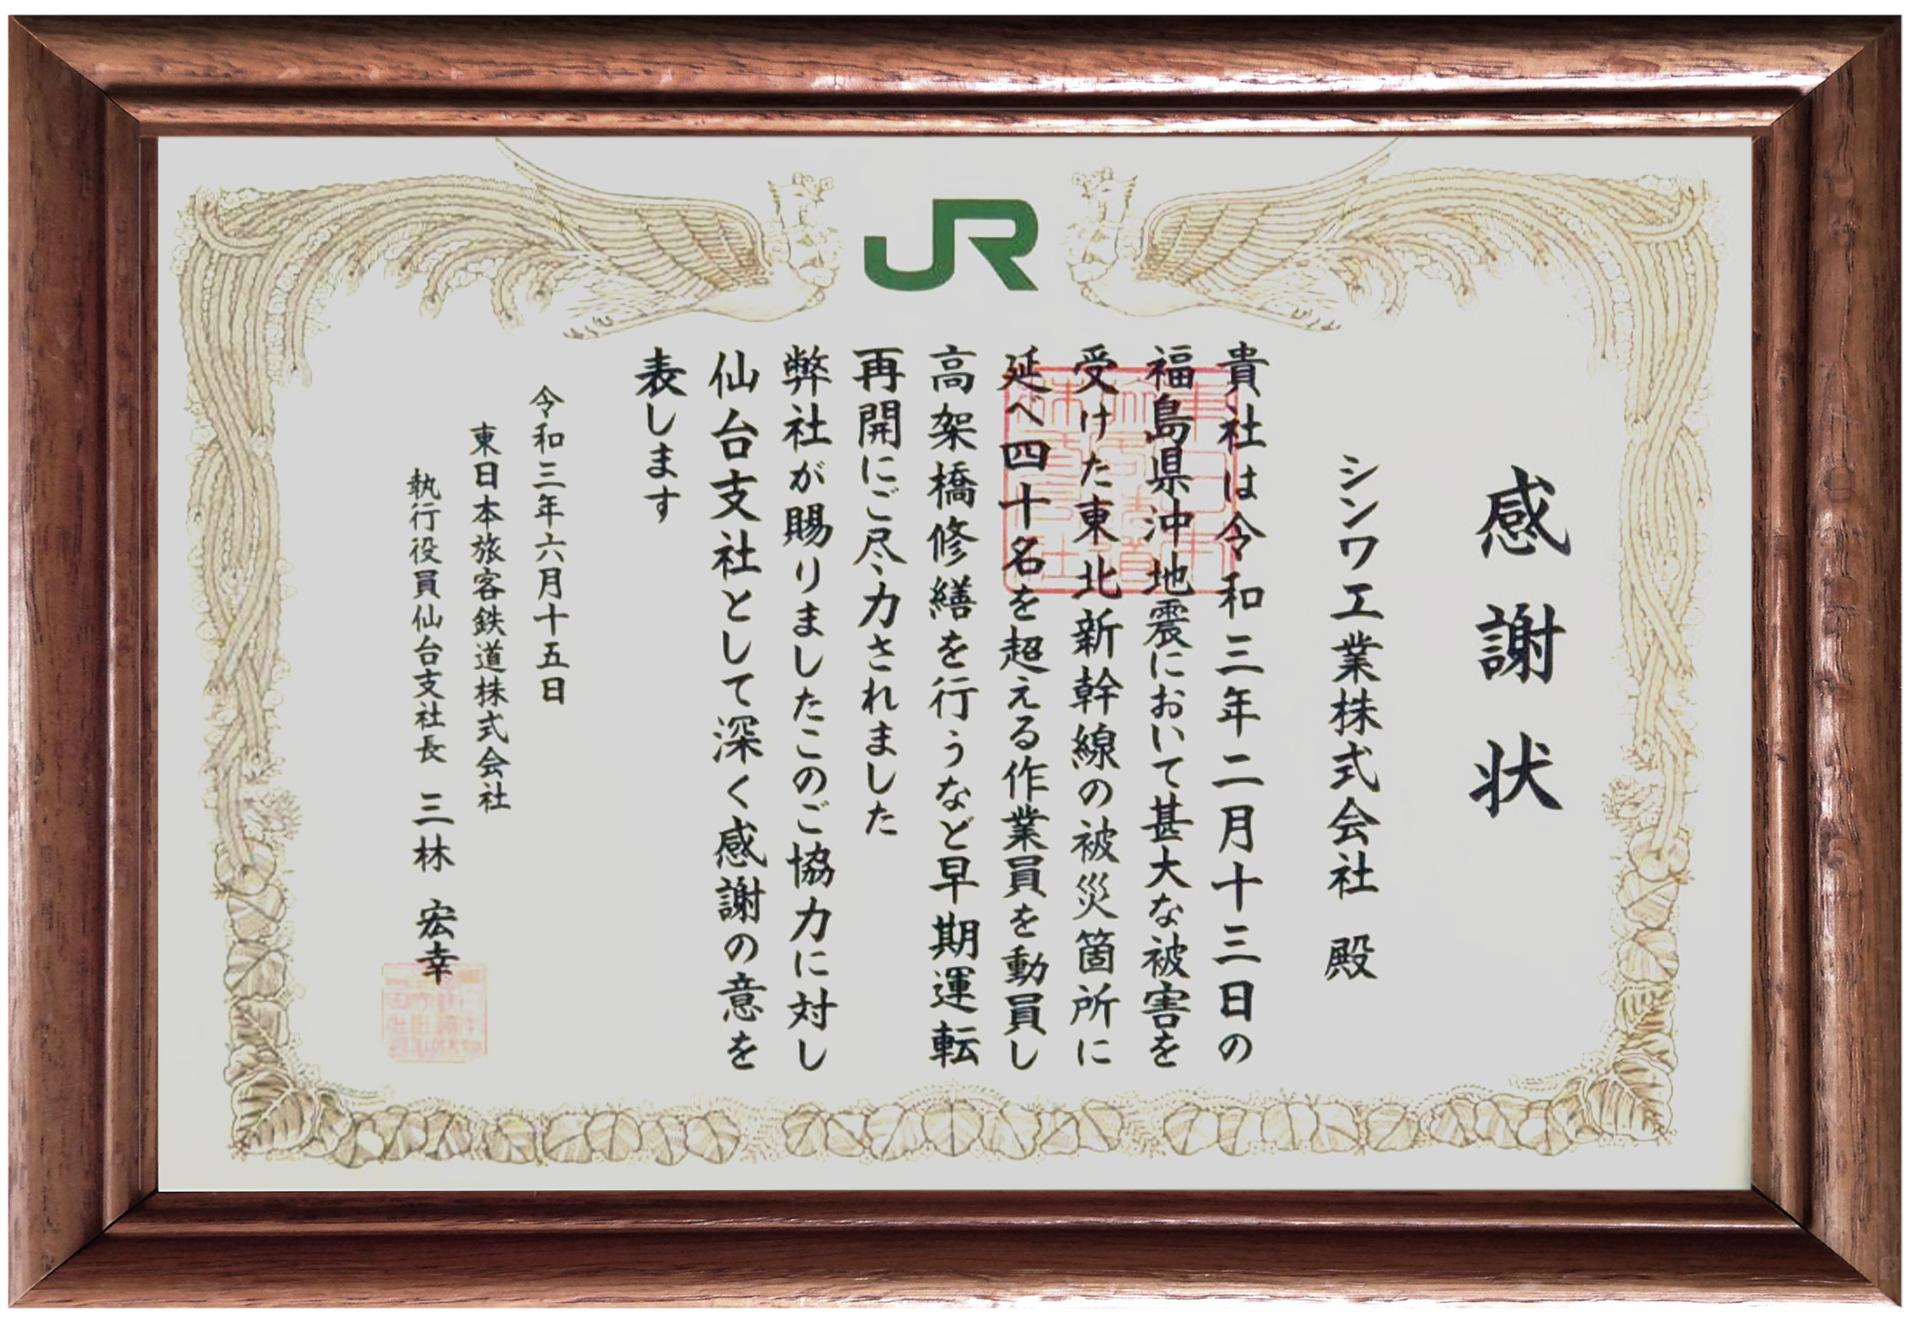 JR
感謝状
シンワ工業株式会社 殿
貴社は令和三年二月十三日の
福島県沖地震において甚大な被害を
受けた東北新幹線の被災箇所に
延べ四十名を超える作業員を動員し
高架橋修繕を行うなど早期運転
再開にご尽力されました
弊社が賜りましたこのご協力に対し
仙台支社として深く感謝の意を
表します
令和三年六月十五日
東日本旅客鉄道株式会社
執行役員仙台支社長 三林 宏幸